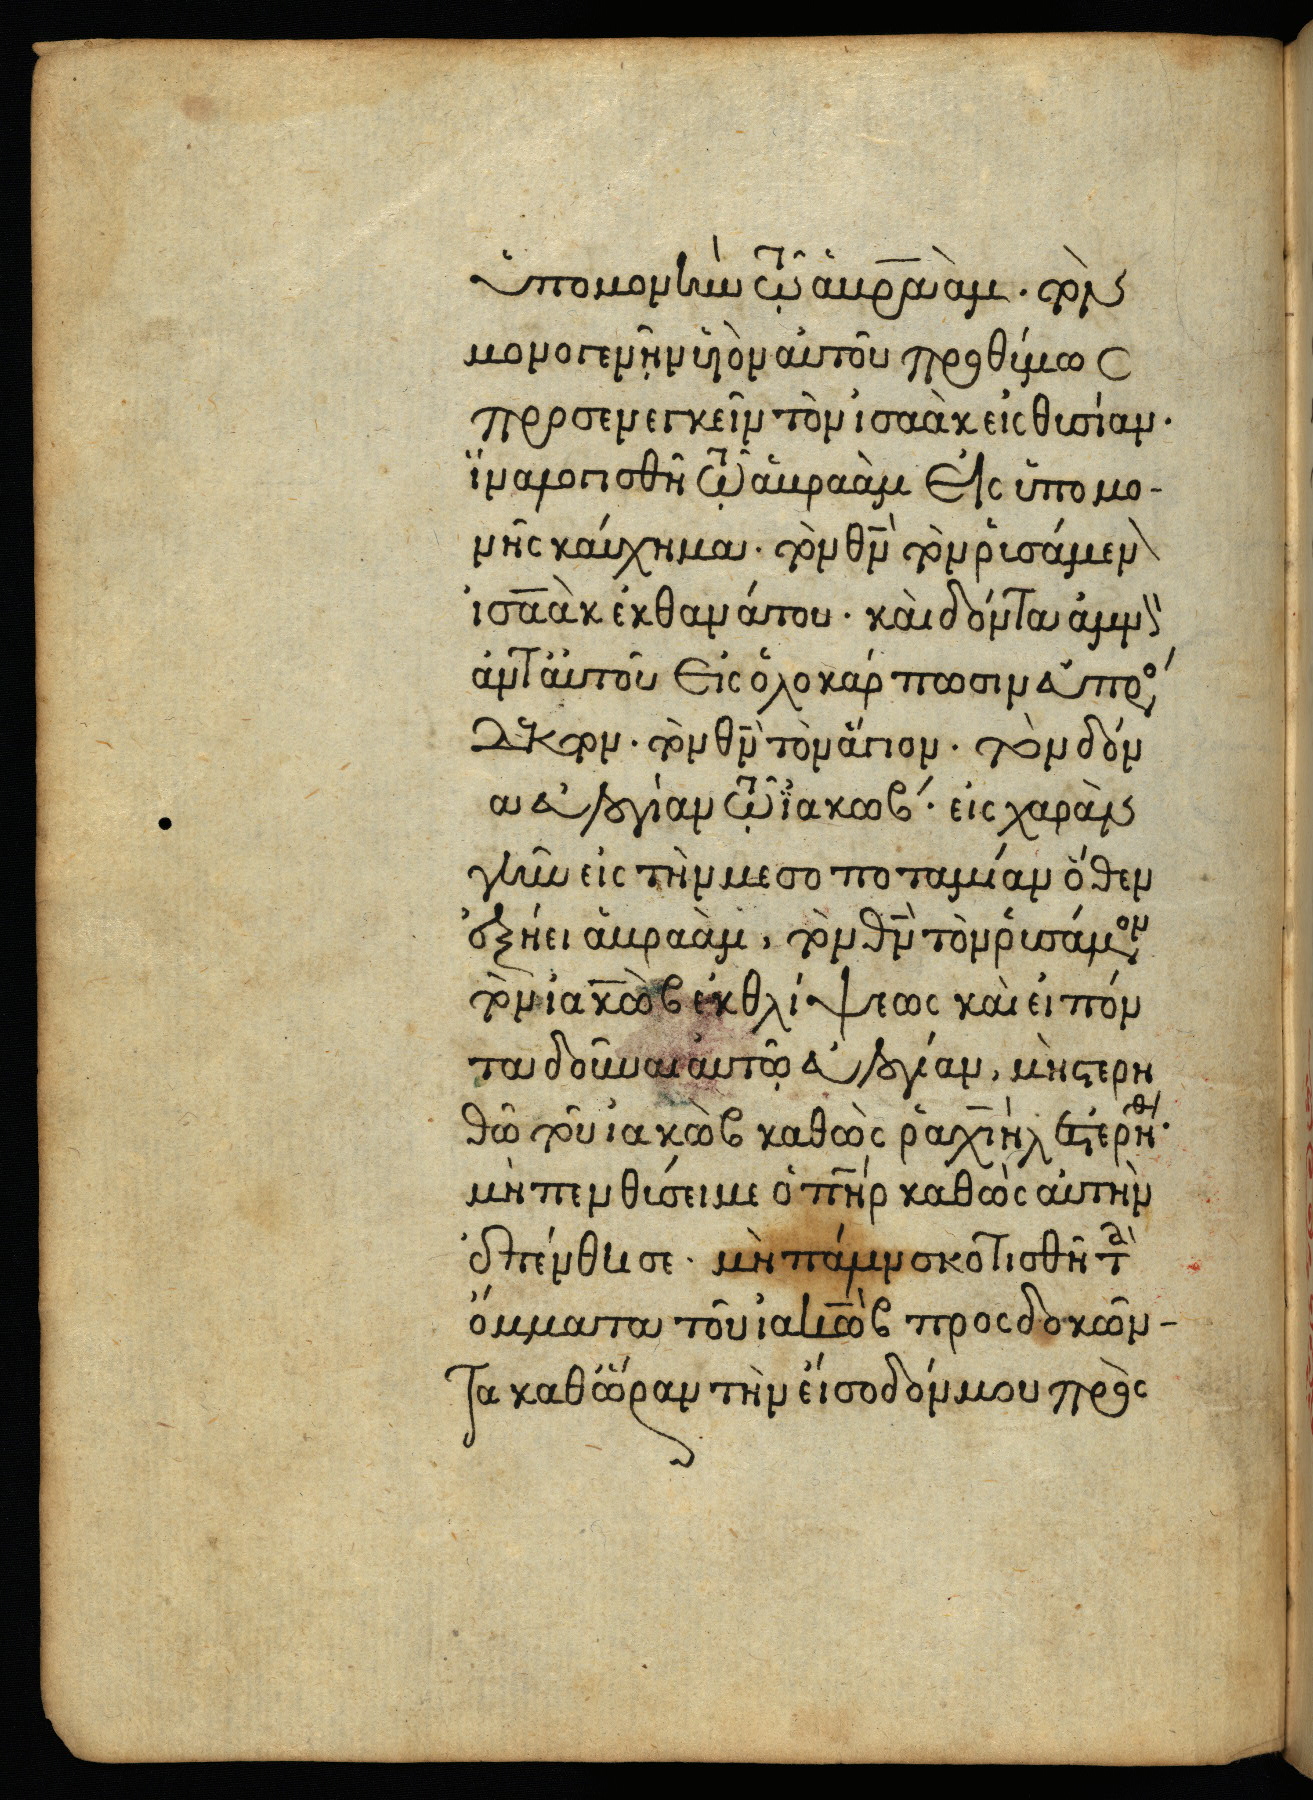 ὑπομονὴν τῷ ἀβρααὰμ · τὸν
μονογενῆν ὑϊὸν αὐτοῦ προθίμως
προσενεγκεῖν τὸν ἰσαὰκ εἰς θισίαν ·
ἵνα λογισθῆ τῷ ἀβραὰμ εἰς ὑπομο-
νῆς καύχημα · τὸν θν̅ τὸν ῥισάμεν
ἰσαὰκ ἐκ θανάτου · καὶ δόντα ἀμν
ἀντ αὐτοῦ εἰς ὁλοκάρπωσιν
τὸν θν̅ τὸν ἅγιον · τὸν δόν
τα εὐλογίαν τῷ ἰακώβ · εἰς χαρὰν
γῆν εἰς τὴν μεσοποταμίαν ὅθεν
ἐξήει ἀβραὰμ, τὸν θν̅ τὸν ῥισάμενον
τὸν ἰακὼβ ἐκ θλίψεως καὶ εἰπόν
τα δοῦναι αὐτῷ εὐλογίαν, μὴ στερη
θῶ τοῦ ἰακὼβ καθὼς ῥαχιὴλ ἐστερήθη ·
μὴ πενθίσει με ὁ πη̅ρ καθὼς αὐτὴν
ἐπένθισε · μὴ πάνυ σκοτισθῆ τὰ
ὄμματα τοῦ ἰακὼβ προσδοκῶν-
τα καθ ὥραν τὴν εἴσοδόν μου πρὸς